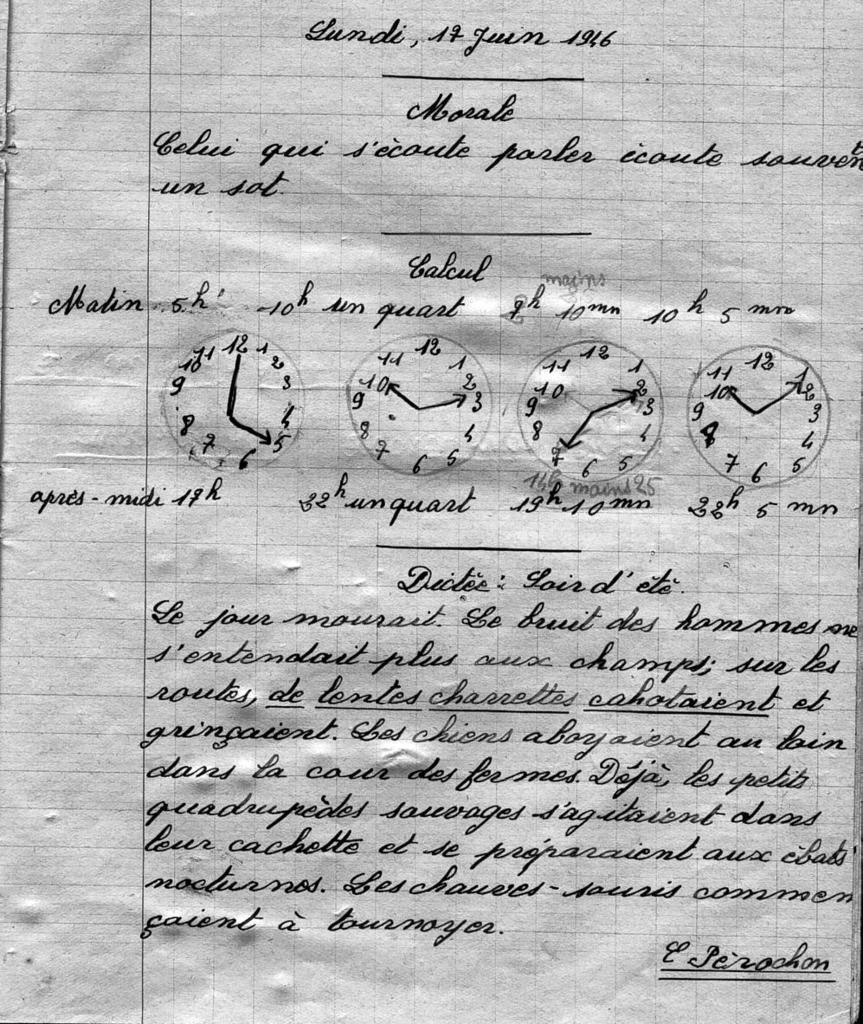 Lundi, 17 Juin 1946
Morale
Celui qui s'écoute parler écoute souvent
un sot.
Calcul
mains
Matin 5h 10h un quart 7h 10mn 10h 5 mn
12 1 2 3 4 5 6 7 8 9 10 11
12 1 2 3 4 5 6 7 8 9 10 11
12 1 2 3 4 5 6 7 8 9 10 11
12 1 2 3 4 5 6 7 8 9 10 11
mains 25
après-midi 17h 22h un quart 19h 10mn 22h 5 mn
Dictée : Soir d'été.
Le jour mourait. Le bruit des hommes ne
s'entendait plus aux champs; sur les
routes, de lentes charrettes cahotaient et
grinçaient. Les chiens aboyaient au loin
dans la cour des fermes. Déjà, les petits
quadrupèdes sauvages s'agitaient dans
leur cachette et se préparaient aux ébats
nocturnes. Les chauves-souris commen
çaient à tournoyer.
E Pérochon